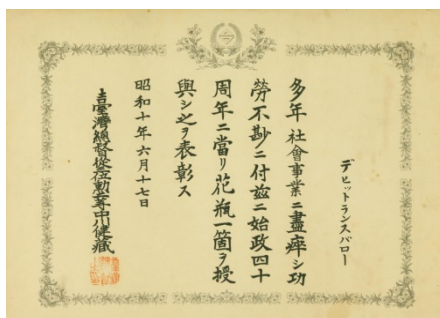 デヒットランスバロー
多年社會事業ニ盡瘁シ功
勞不尠ニ付玆ニ始政四十
周年ニ當リ花瓶一箇ヲ授
與シ之ヲ表彰ス
昭和十年六月十七日
臺灣總督從三位勳一等中川健藏